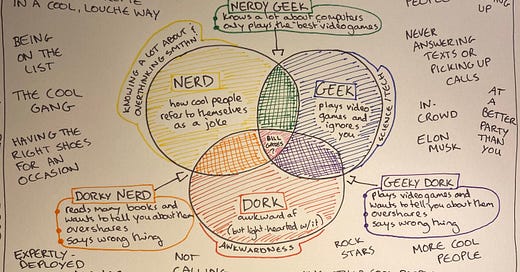 IN A COOL, LOUCHE WAY
NERDY GEEK
knows a lot about computers
only plays the "best" video games
PEOPLE
UP
BEING
ON THE
LIST
KNOWING A LOT ABOUT &
OVERTHINKING SMTHN
NERD
how cool people
refer to themselves
as a joke
GEEK
plays video
games and
ignores
you
SCIENCE / TECH
NEVER
ANSWERING
TEXTS OR
PICKING UP
CALLS
THE COOL
GANG
IN-
CROWD
ELON
MUSK
AT
A
BETTER
PARTY
THAN
YOU
HAVING THE
RIGHT SHOES
FOR AN
OCCASION
BILL
GATES
DORKY NERD
reads many books and
wants to tell you about them
overshares
says wrong thing
DORK
awkward af
(but light-hearted w/it)
AWKWARDNESS
GEEKY DORK
plays videogames and
wants to tell you about them
overshares
says wrong thing
EXPERTLY-
DEPLOYED
NOT
CALLING
ROCK
STARS
MORE COOL
PEOPLE